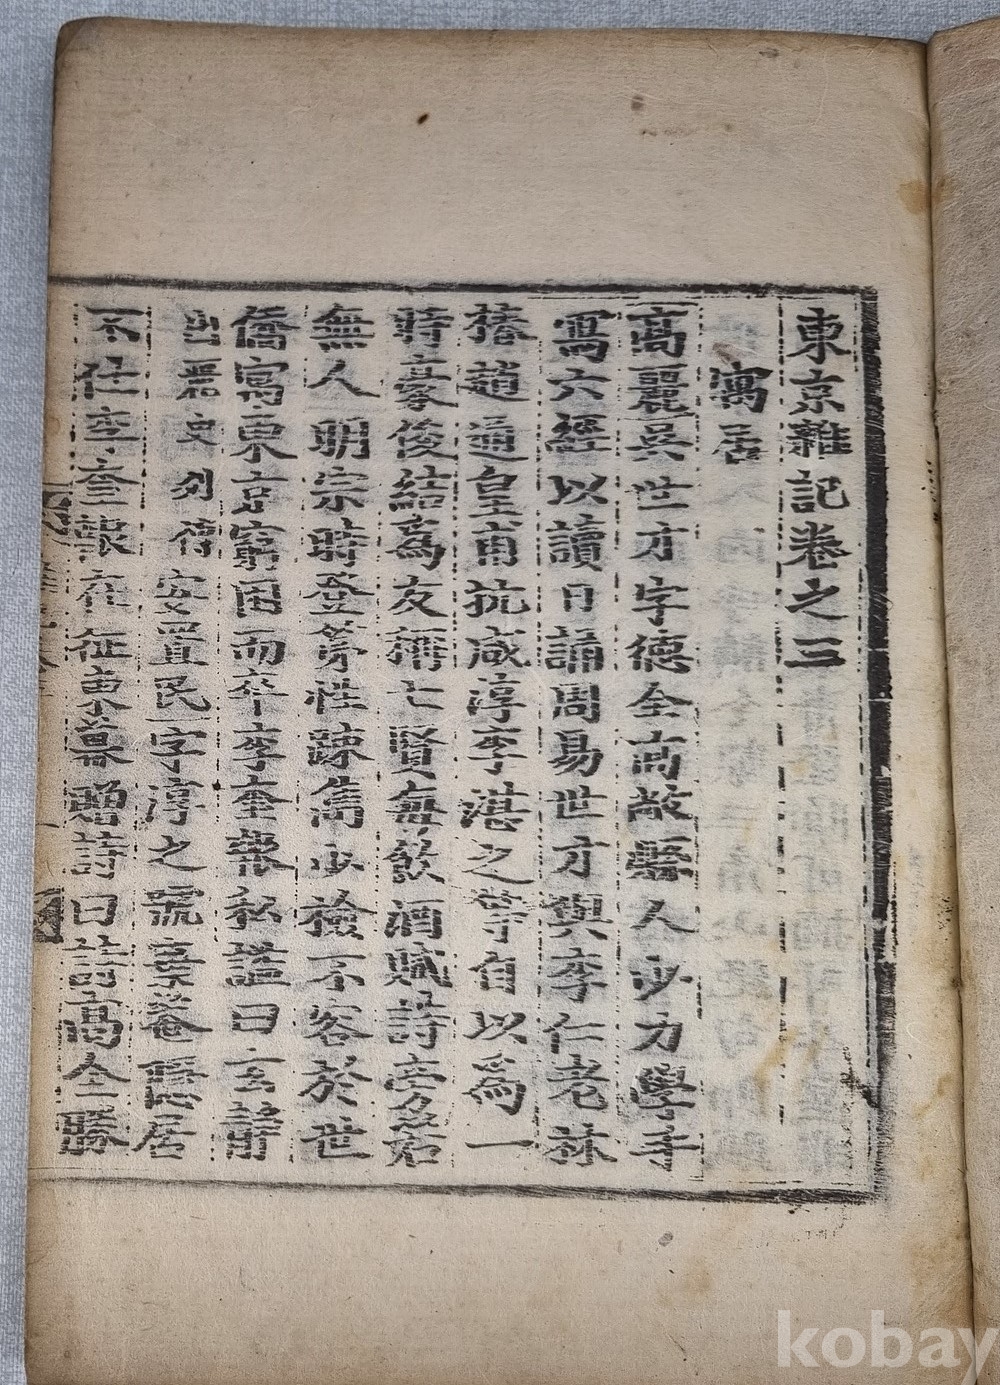 東京雜記卷之三
寓居
高麗吳世才字德全高敞縣人少力學手
寫六經以讀日誦周易世才與李仁老林
椿趙通皇甫抗咸淳李湛之等自以爲一
時豪俊結爲友稱七賢每飮酒賦詩旁若
無人明宗時登第性踈雋少檢不容於世
僑寓東京窮困而卒李奎報私謚曰玄靜
出麗史列傳 安置民字淳之號棄菴隱居
不仕李奎報在征東幕贈詩曰詩高全勝
kobay